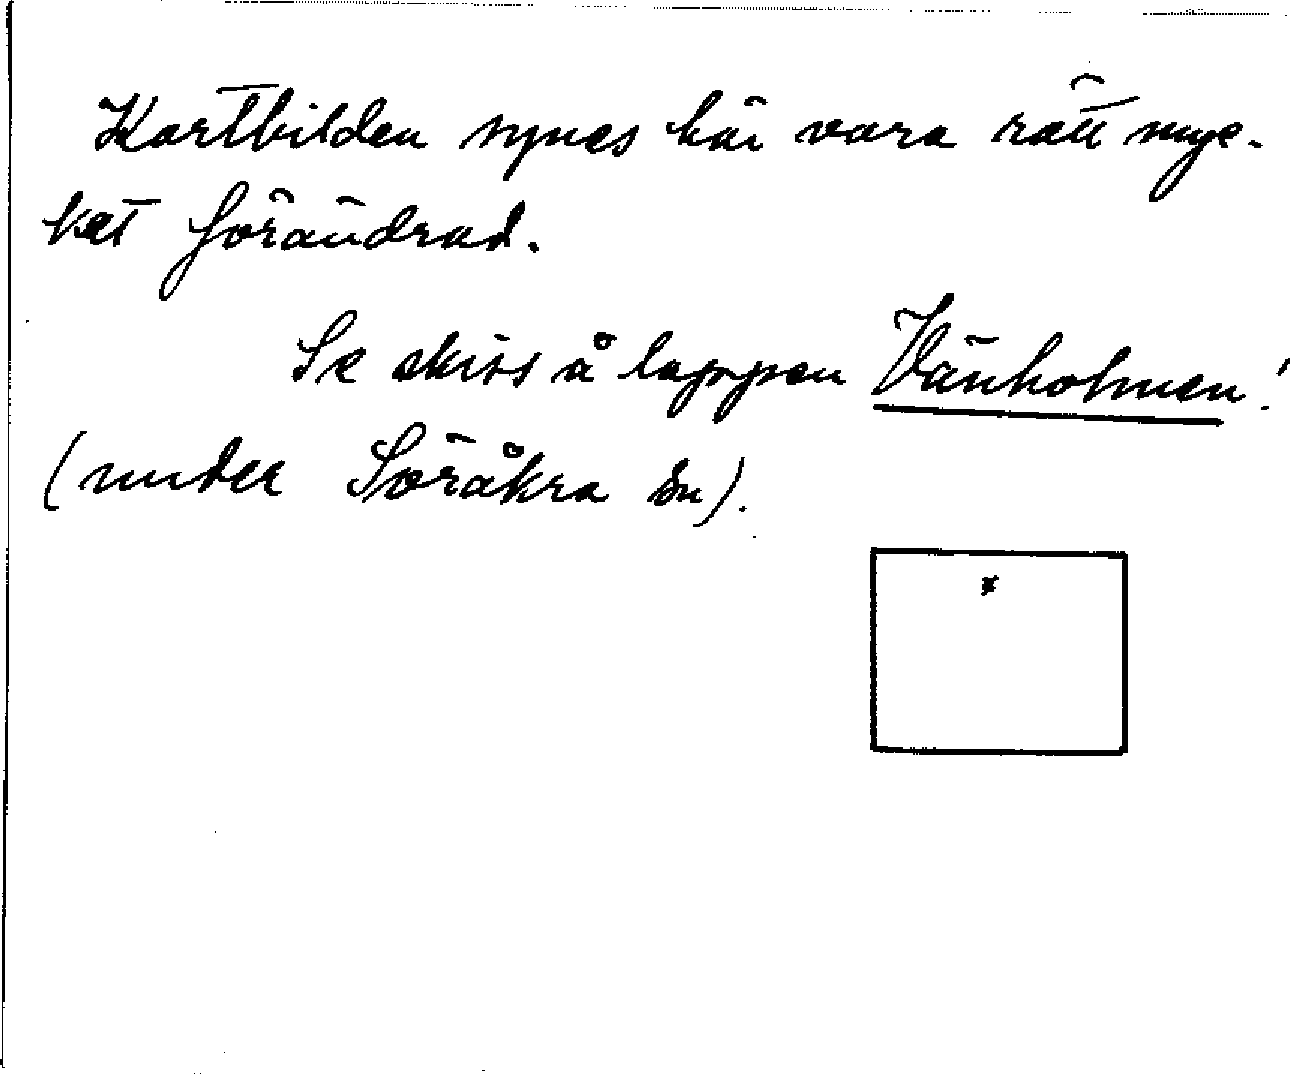 Kartbilden synes här vara rätt myc-
ket förändrad.
Se skiss å lappen Vänholmen!
(under Söråkra sn).
x